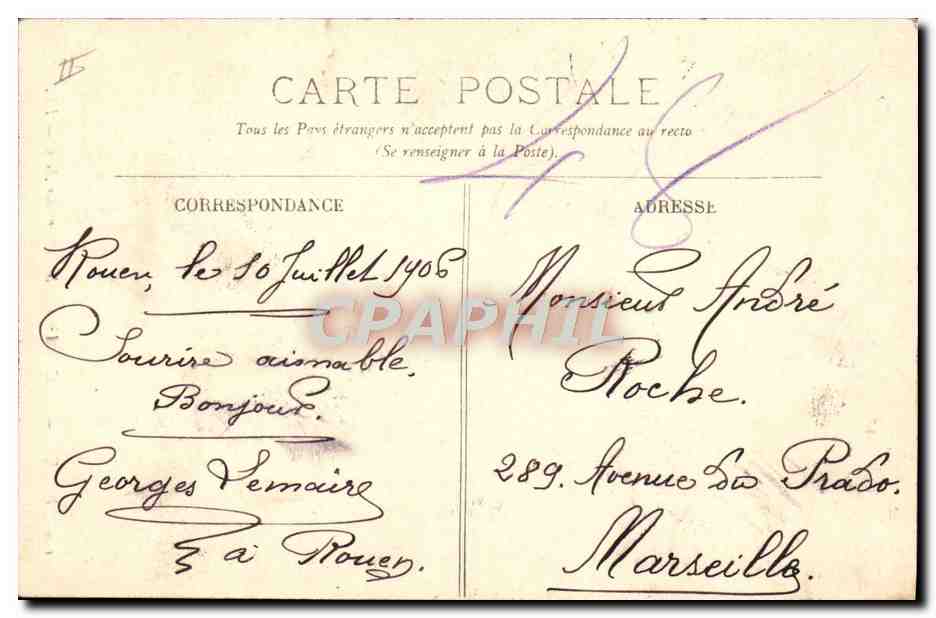 II
CARTE POSTALE
Tous les Pays étrangers n'acceptent pas la Correspondance au recto
(Se renseigner à la Poste).
48
CORRESPONDANCE
Rouen, le 10 Juillet 1906
Sourire aimable.
Bonjour.
Georges Lemaire
à Rouen.
ADRESSE
Monsieur André
Roche.
289. Avenue du Prado.
Marseille.
CPAPHIL